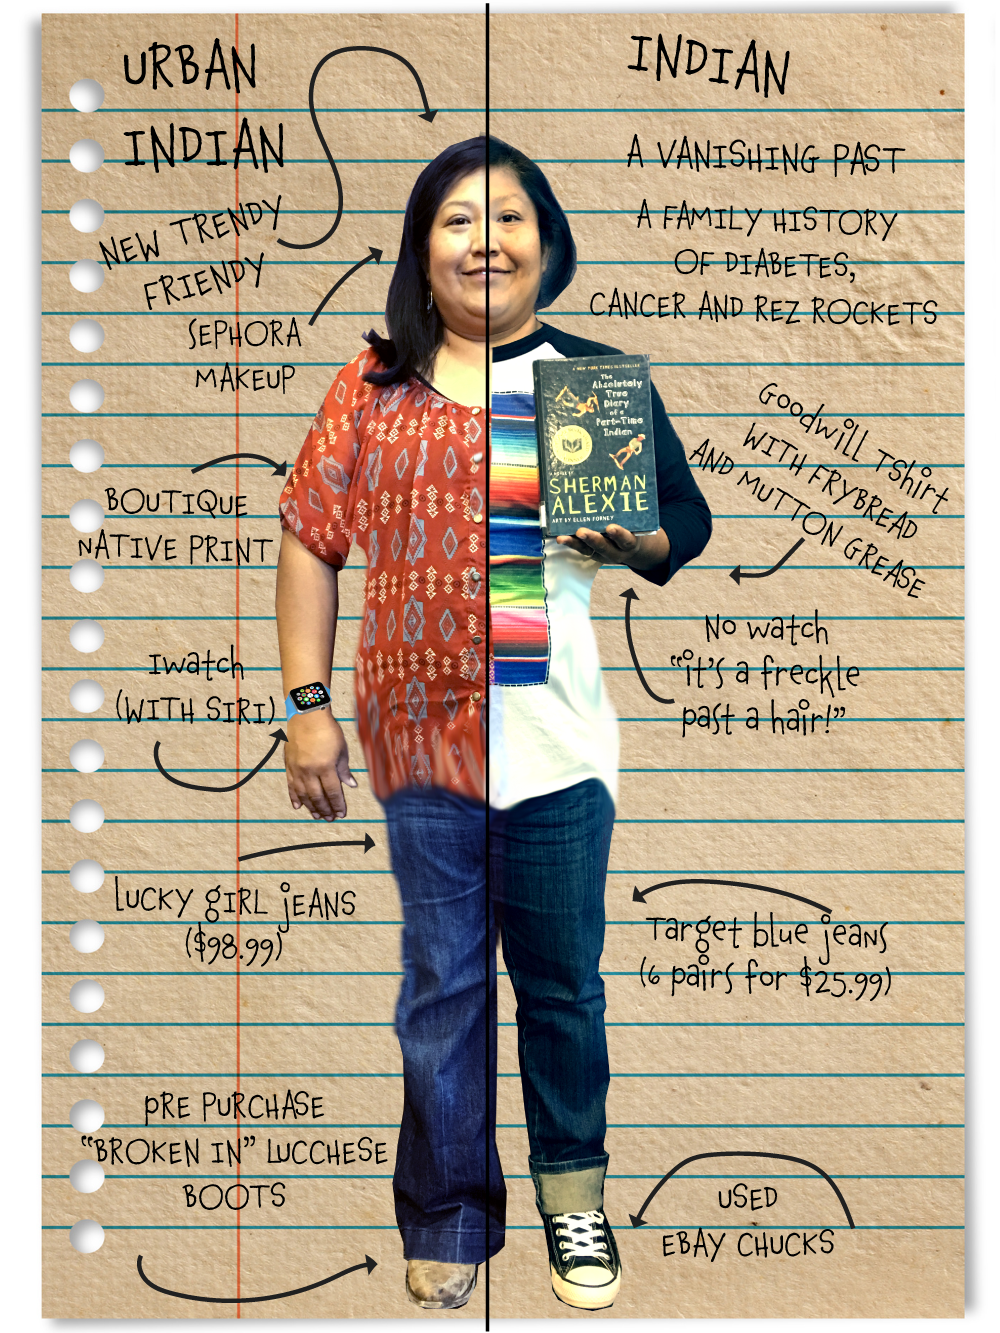 URBAN
INDIAN
NEW TRENDY
FRIENDY
SEPHORA
MAKEUP
BOUTIQUE
NATIVE PRINT
iwatch
(WITH SIRI)
LUCKY gIRL jEANS
($98.99)
PRE PURCHASE
“BROKEN IN” LUCCHESE
BOOTS
INDIAN
A VANISHING PAST
A FAMILY HISTORY
OF DIABETES,
CANCER AND REZ ROCKETS
Goodwill Tshirt
WITH FRYBREAD
AND MUTTON GREASE
No watch
“it’s a freckle
past a hair!”
Target blue jeans
(6 pairs for $25.99)
USED
EBAY CHUCKS
A NEW YORK TIMES BESTSELLER
The
Absolutely
True
Diary
of a
Part-Time
Indian
A NOVEL BY
SHERMAN
ALEXIE
ART BY ELLEN FORNEY